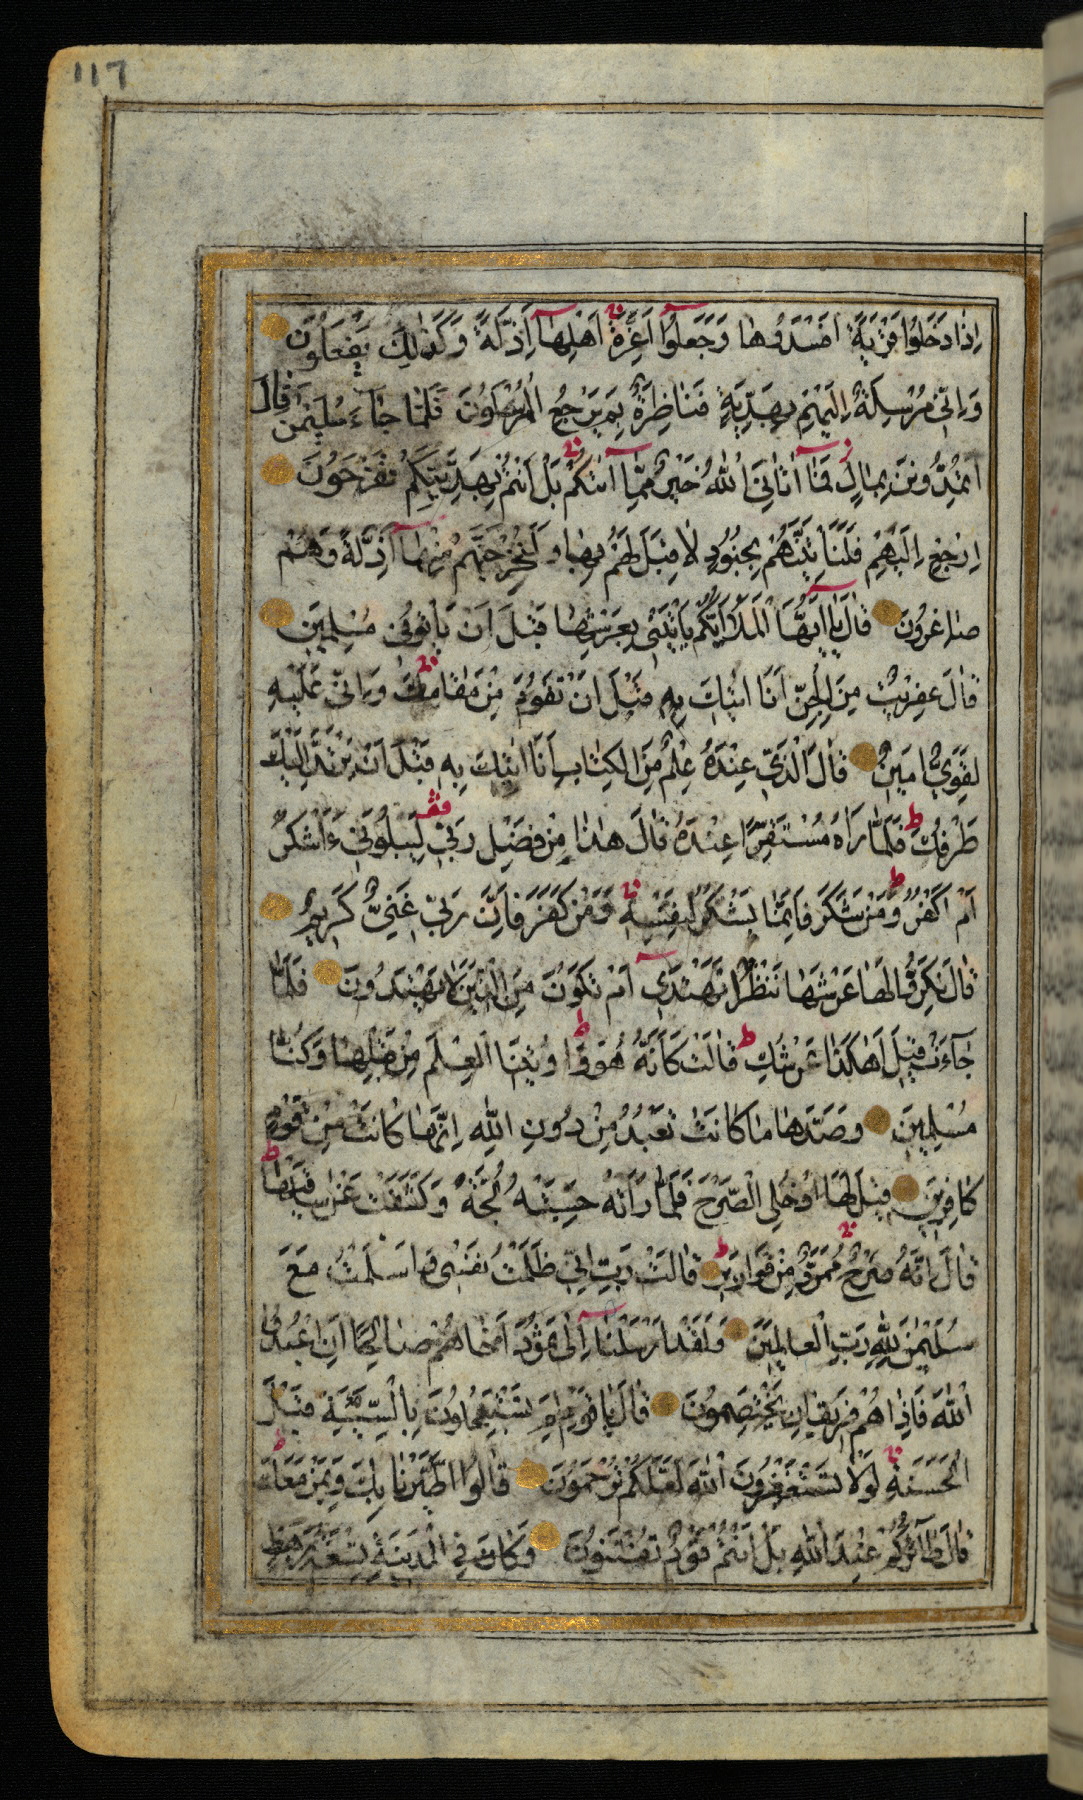 ١١٦
اِذٰا دَخَلُوا قَرْيَةً اَفْسَدُوهٰا وَجَعَلُوٓا اَعِزَّةَ اَهْلِهٰٓا اَذِلَّةً وَكَذٰلِكَ يَفْعَلُونَ
وَاِنّي مُرْسِلَةٌ اِلَيْهِمْ بِهَدِيَّةٍ فَنٰاظِرَةٌ بِمَ يَرْجِعُ الْمُرْسَلُونَ فَلَمّٰا جٰاءَ سُلَيْمٰنَ قٰالَ
اَتُمِدُّونَنِ بِمٰالٍ فَمٰٓا اٰتٰانِيَ اللّٰهُ خَيْرٌ مِمّٰٓا اٰتٰكُمْ بَلْ اَنْتُمْ بِهَدِيَّتِكُمْ تَفْرَحُونَ
اِرْجِعْ اِلَيْهِمْ فَلَنَأْتِيَنَّهُمْ بِجُنُودٍ لٰا قِبَلَ لَهُمْ بِهٰا وَلَنُخْرِجَنَّهُمْ مِنْهٰٓا اَذِلَّةً وَهُمْ
صٰاغِرُونَ قٰالَ يٰٓا اَيُّهَا الْمَلَأُ اَيُّكُمْ يَأْتِيني بِعَرْشِهٰا قَبْلَ اَنْ يَأْتُوني مُسْلِمِينَ
قٰالَ عِفْرِيتٌ مِنَ الْجِنِّ اَنَا اٰتِيكَ بِهِ قَبْلَ اَنْ تَقُومَ مِنْ مَقٰامِكَ وَاِنّي عَلَيْهِ
لَقَوِيٌّ اَمِينٌ قٰالَ الَّذي عِنْدَهُ عِلْمٌ مِنَ الْكِتٰابِ اَنَا اٰتِيكَ بِهِ قَبْلَ اَنْ يَرْتَدَّ اِلَيْكَ
طَرْفُكَ فَلَمّٰا رَاٰهُ مُسْتَقِرًّا عِنْدَهُ قٰالَ هٰذٰا مِنْ فَضْلِ رَبّي لِيَبْلُوَني ءَاَشْكُرُ
اَمْ اَكْفُرُ وَمَنْ شَكَرَ فَاِنَّمٰا يَشْكُرُ لِنَفْسِهِ وَمَنْ كَفَرَ فَاِنَّ رَبّي غَنِيٌّ كَرِيمٌ
قٰالَ نَكِّرُوا لَهٰا عَرْشَهٰا نَنْظُرْ اَتَهْتَدي اَمْ تَكُونُ مِنَ الَّذِينَ لٰا يَهْتَدُونَ فَلَمّٰا
جٰاءَتْ قِيلَ اَهٰكَذٰا عَرْشُكِ قٰالَتْ كَاَنَّهُ هُوَ وَاُوتِينَا الْعِلْمَ مِنْ قَبْلِهٰا وَكُنّٰا
مُسْلِمِينَ وَصَدَّهٰا مٰا كٰانَتْ تَعْبُدُ مِنْ دُونِ اللّٰهِ اِنَّهٰا كٰانَتْ مِنْ قَوْمٍ
كٰافِرِينَ قِيلَ لَهَا ادْخُلِي الصَّرْحَ فَلَمّٰا رَاَتْهُ حَسِبَتْهُ لُجَّةً وَكَشَفَتْ عَنْ سٰاقَيْهٰا
قٰالَ اِنَّهُ صَرْحٌ مُمَرَّدٌ مِنْ قَوٰارِيرَ قٰالَتْ رَبِّ اِنّي ظَلَمْتُ نَفْسي وَاَسْلَمْتُ مَعَ
سُلَيْمٰنَ لِلّٰهِ رَبِّ الْعٰالَمِينَ وَلَقَدْ اَرْسَلْنٰٓا اِلٰى ثَمُودَ اَخٰاهُمْ صٰالِحًا اَنِ اعْبُدُوا
اللّٰهَ فَاِذٰا هُمْ فَرِيقٰانِ يَخْتَصِمُونَ قٰالَ يٰا قَوْمِ لِمَ تَسْتَعْجِلُونَ بِالسَّيِّئَةِ قَبْلَ
الْحَسَنَةِ لَوْلٰا تَسْتَغْفِرُونَ اللّٰهَ لَعَلَّكُمْ تُرْحَمُونَ قٰالُوا اطَّيَّرْنٰا بِكَ وَبِمَنْ مَعَكَ
قٰالَ طٰٓائِرُكُمْ عِنْدَ اللّٰهِ بَلْ اَنْتُمْ قَوْمٌ تُفْتَنُونَ وَكٰانَ فِي الْمَدِينَةِ تِسْعَةُ رَهْطٍ